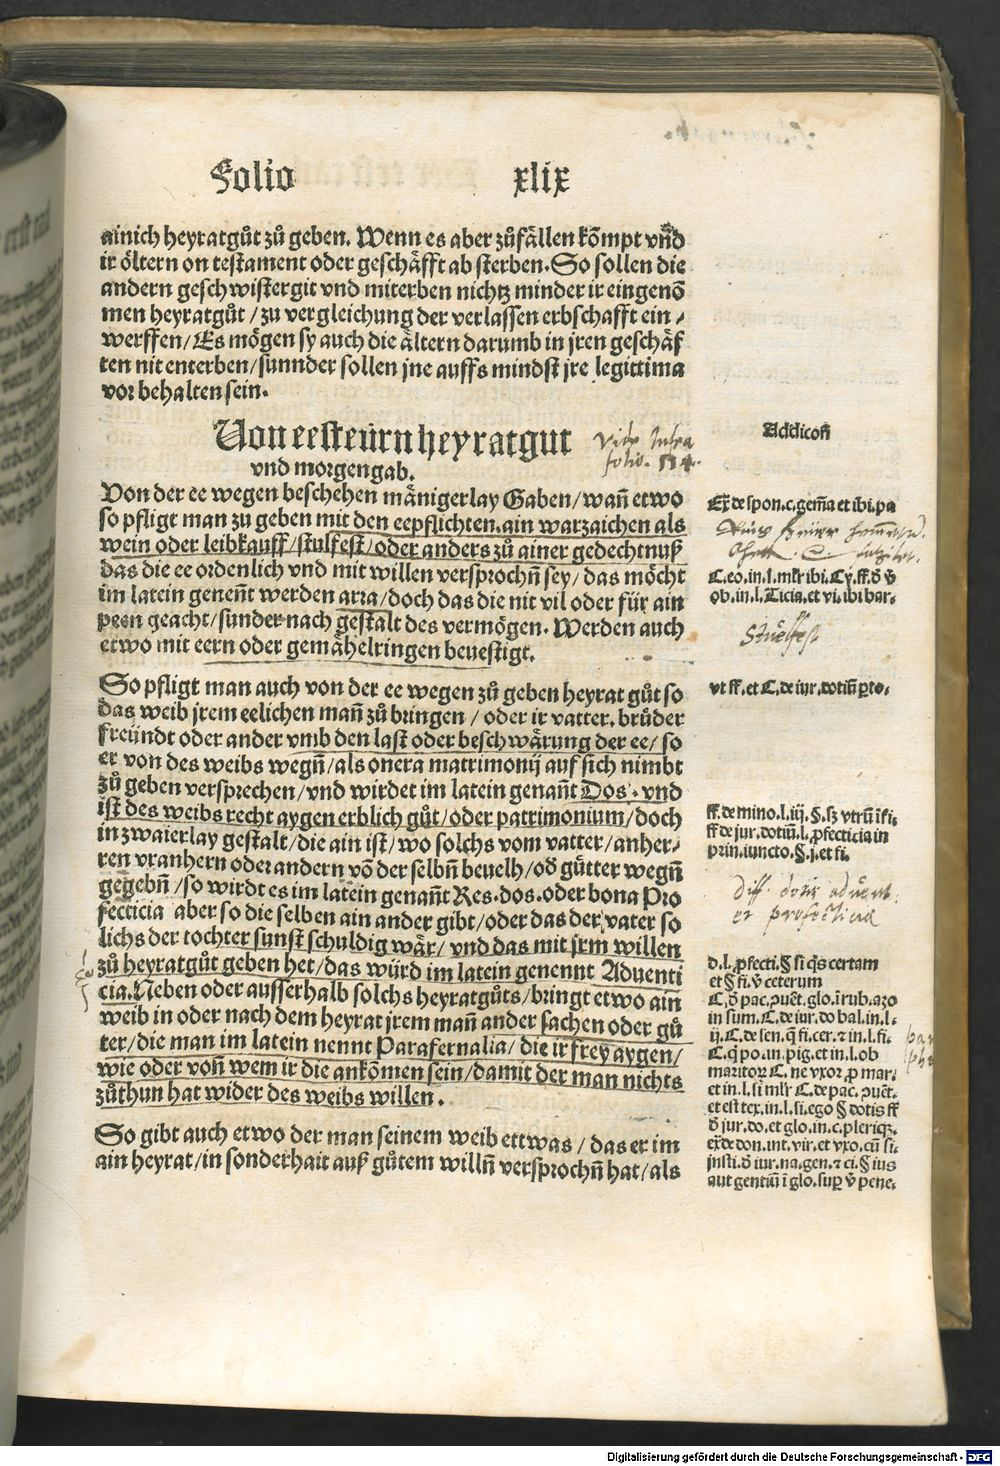 Folio xlix
ainich heyratgůt zů geben. Wenn es aber zůfällen kõmpt vnd
ir öltern on testament oder geschäfft ab sterben. So sollen die
andern geschwistergit vnd miterben nichtz minder ir eingenõ
men heyratgůt / zu vergleichung der verlassen erbschafft ein /
werffen / Es mögen sy auch die ältern darumb in jren geschäf
ten nit enterben / sunnder sollen jne auffs mindst jre legittima
vor behalten sein.
Von eesteürn heyratgut
vnd morgengab.
Von der ee wegen beschehen mänigerlay Gaben / wañ etwo
so pfligt man zu geben mit den eepflichten. ain warzaichen als
wein oder leibkauff / stulfest / oder anders zů ainer gedechtnuß
das die ee ordenlich vnd mit willen versprochñ sey / das möcht
im latein geneñt werden arra / doch das die nit vil oder für ain
peen geacht / sunder nach gestalt des vermögen. Werden auch
etwo mit eern oder gemähelringen beuestigt.
So pfligt man auch von der ee wegen zů geben heyrat gůt so
das weib jrem eelichen mañ zů bringen / oder ir vatter. brůder
freündt oder ander vmb den last oder beschwärung der ee / so
er von des weibs wegñ / als onera matrimonij auf sich nimbt
zů geben versprechen / vnd wirdet im latein genañt Dos. vnd
ist des weibs recht aygen erblich gůt / oder patrimonium / doch
in zwaierlay gestalt / die ain ist / wo solchs vom vatter / anher /
ren vranhern oder andern võ der selbñ beuelh / oď gůtter wegñ
gegebñ / so wirdt es im latein genañt Res. dos. oder bona Pro
fecticia aber so die selben ain ander gibt / oder das der vater so
lichs der tochter sunst schuldig wär / vnd das mit jrm willen
zů heyratgůt geben het / das würd im latein genennt Aduenti
cia. Neben oder ausserhalb solchs heyratgůts / bringt etwo ain
weib in oder nach dem heyrat jrem mañ ander sachen oder gů
ter / die man im latein nennt Parafernalia / die ir frey aygen /
wie oder voñ wem ir die ankõmen sein / damit der man nichts
zůthun hat wider des weibs willen.
So gibt auch etwo der man seinem weib ettwas / das er im
ain heyrat / in sonderhait auß gůtem willñ versprochñ hat / als
vide Infra
folio. 114.
Addicoñ
Ex̃ de spon. c. gem̃a et ibi. pa
C. eo. in. l. mlr̃ ibi. Cy. ff. ð v̓
ob. in. l. Ticia. et vi. ibi bar.
Stuelfest
vt ff. et C. de iur. dotiũ ꝑto.
ff. de mino. l. iij. §. sꝫ vtrũ ĩ fi.
ff de jur. dotiũ. l. ꝓfecticia in
prin. iuncto. §. j. et fi.
Diff dotis advent.
et profecticia
d. l. ꝓfecti. § si q̃s certam
et § fi. v̓ ceterum
C. ð pac. ꝯuẽt. glo. ĩ rub. azo
in sum. C. de iur. do bal. in. l.
ij. C. de sen. q̃ fi. cer. ⁊ in. l. fi.
C. q̃ po. in. pig. et in. l. ob
maritorꝝ C. ne vxor. ꝓ mar.
et in. l. si mlr̃ C. de pac. ꝯuẽt.
et est tex. in. l. si. ego § dotis ff
ð jur. do. et glo. in. c. pleriqꝫ.
ex̃ de don. int. vir. et vxo. cũ si.
jnsti. ð iur. na. gen. ⁊ ci. § ius
aut gentiũ ĩ glo. suꝑ v̓ pene.
Digitalisierung gefördert durch die Deutsche Forschungsgemeinschaft - DFG